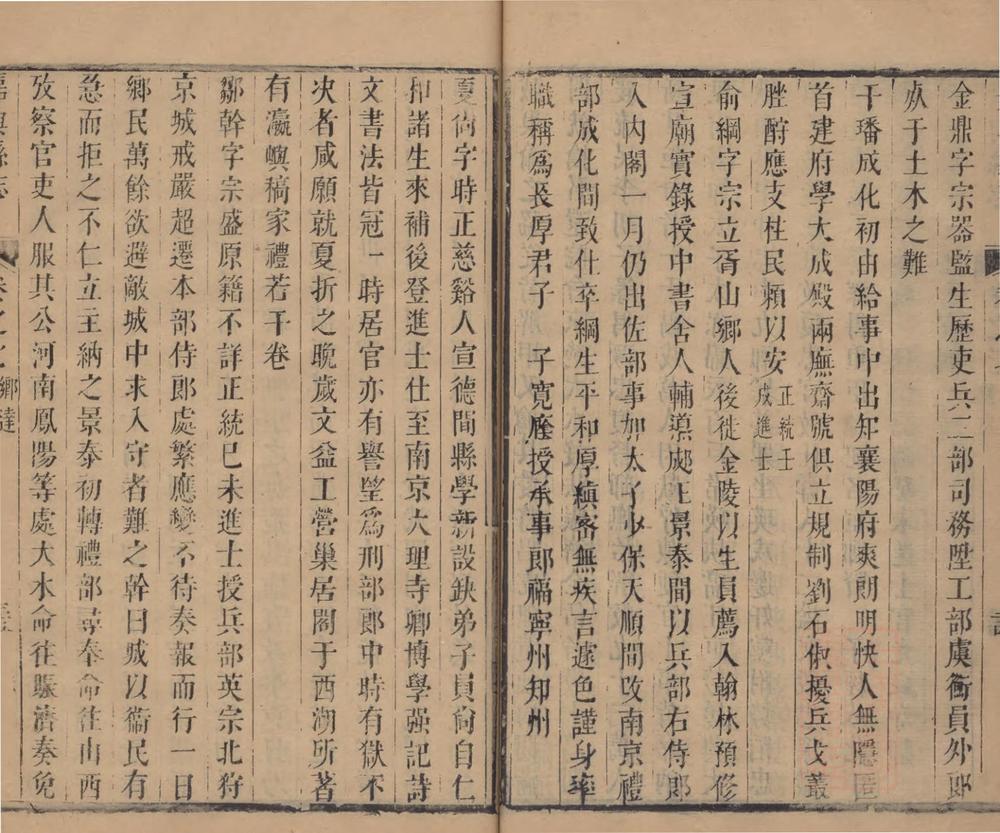 金鼎字宗器監生歷吏兵二部司務陞工部虞衡員外郎
㱥于土木之難
干璠成化初由給事中出知襄陽府爽朗明快人無隱匿
首建府學大成殿兩廡齋號俱立規制劉石俶擾兵戈叢
脞酧應支柱民頼以安正統壬戌進士
俞綱字宗立胥山鄉人後徙金陵以生員薦入翰林預修
宣廟實錄授中書舍人輔導郕王景泰間以兵部右侍郎
入內閣一月仍出佐部事加太子少保天順間改南京禮
部成化間致仕卒綱生平和厚縝密無疾言遽色謹身率
職稱爲長厚君子 子寛廕授承事郎福寧州知州
夏尙字時正慈谿人宣德間縣學新設缺弟子員尙自仁
和諸生來補後登進士仕至南京大理寺卿博學强記詩
文書法皆冠一時居官亦有譽望爲刑部郎中時有獄不
決者咸願就夏折之晚歲文益工營巢居閣于西湖所著
有瀛嶼稿家禮若干卷
鄒幹字宗盛原籍不詳正統己未進士授兵部英宗北狩
京城戒嚴超遷本部侍郎處繁應變不待奏報而行一日
鄉民萬餘欲避敵城中求入守者難之幹曰城以衞民有
急而拒之不仁立主納之景泰初轉禮部尋奉命往山西
攷察官吏人服其公河南鳳陽等處大水命往賑濟奏免
嘉興縣志 卷之七 鄉達